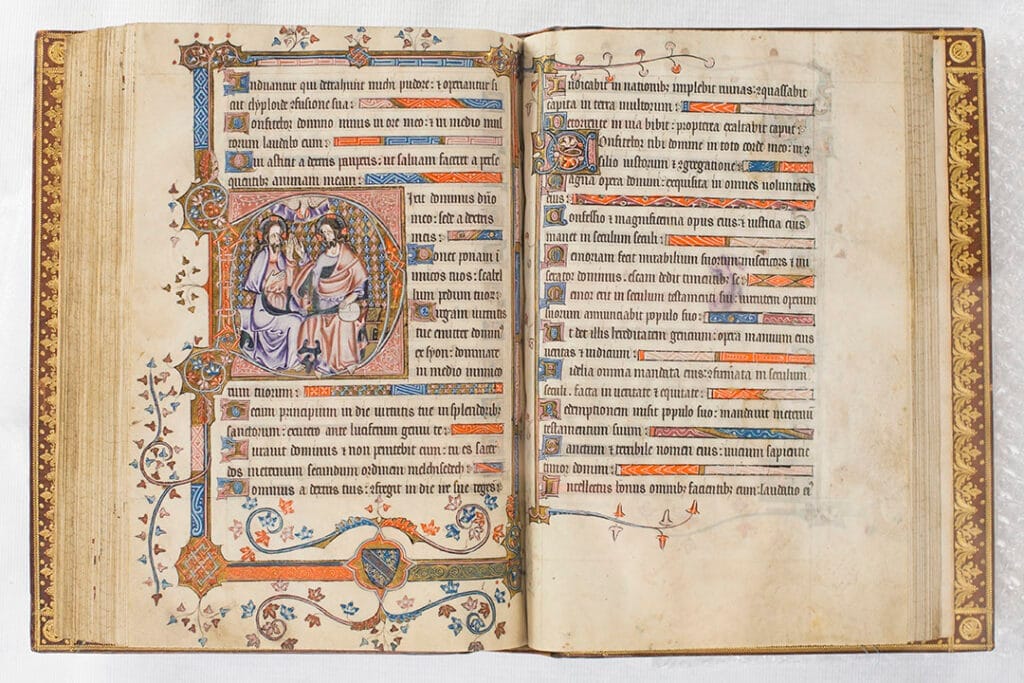 Induantur qui detrahunt michi pudore: ⁊ operiantur si
cut dyploide ꝯfusione sua:
Confitebor domino nimis in ore meo: ⁊ in medio mul
torum laudabo eum:
Qui astitit a dextris pauperis: ut saluam faceret a perse
quentibꝫ animam meam:
Dixit dominus dño
meo: sede a dextris
meis:
Donec ponam i
nimicos tuos: scabel
lum pedum tuoꝝ:
Uirgam uirtutis
tue emittet dominꝰ
ex syon: dominare
in medio inimico
rum tuorum:
Tecum principium in die uirtutis tue in splendoribꝫ
sanctorum: ex utero ante luciferum genui te:
Iurauit dominus ⁊ non penitebit eum: tu es sacer
dos in eternum secundum ordinem melchisedech:
Dominus a dextris tuis: ꝯfregit in die ire sue reges:
Iudicabit in nationibꝫ implebit ruinas: ꝯquassabit
capita in terra multorum:
De torrente in uia bibit: propterea exaltabit caput:
Confitebor tibi domine in toto corde meo: in ꝯ
silio iustorum ⁊ ꝯgregatione:
Magna opera domini: exquisita in omnes uoluntates
eius:
Confessio ⁊ magnificentia opus eius: ⁊ iusticia eius
manet in seculum seculi:
Memoriam fecit mirabilium suorum misericors ⁊ mi
serator dominus. escam dedit timentibꝫ se:
Memor erit in seculum testamenti sui: uirtutem operum
suorum annunciabit populo suo:
Ut det illis hereditatem gencium: opera manuum eius
ueritas ⁊ iudicium:
Fidelia omnia mandata eius: ꝯfirmata in seculum
seculi. facta in ueritate ⁊ equitate:
Redemptionem misit populo suo: mandauit in eternũ
testamentum suum:
Sanctum ⁊ terribile nomen eius: inicium sapientie
timor domini:
Intellectus bonus omnibꝫ facientibꝫ eum: laudatio eiꝰ